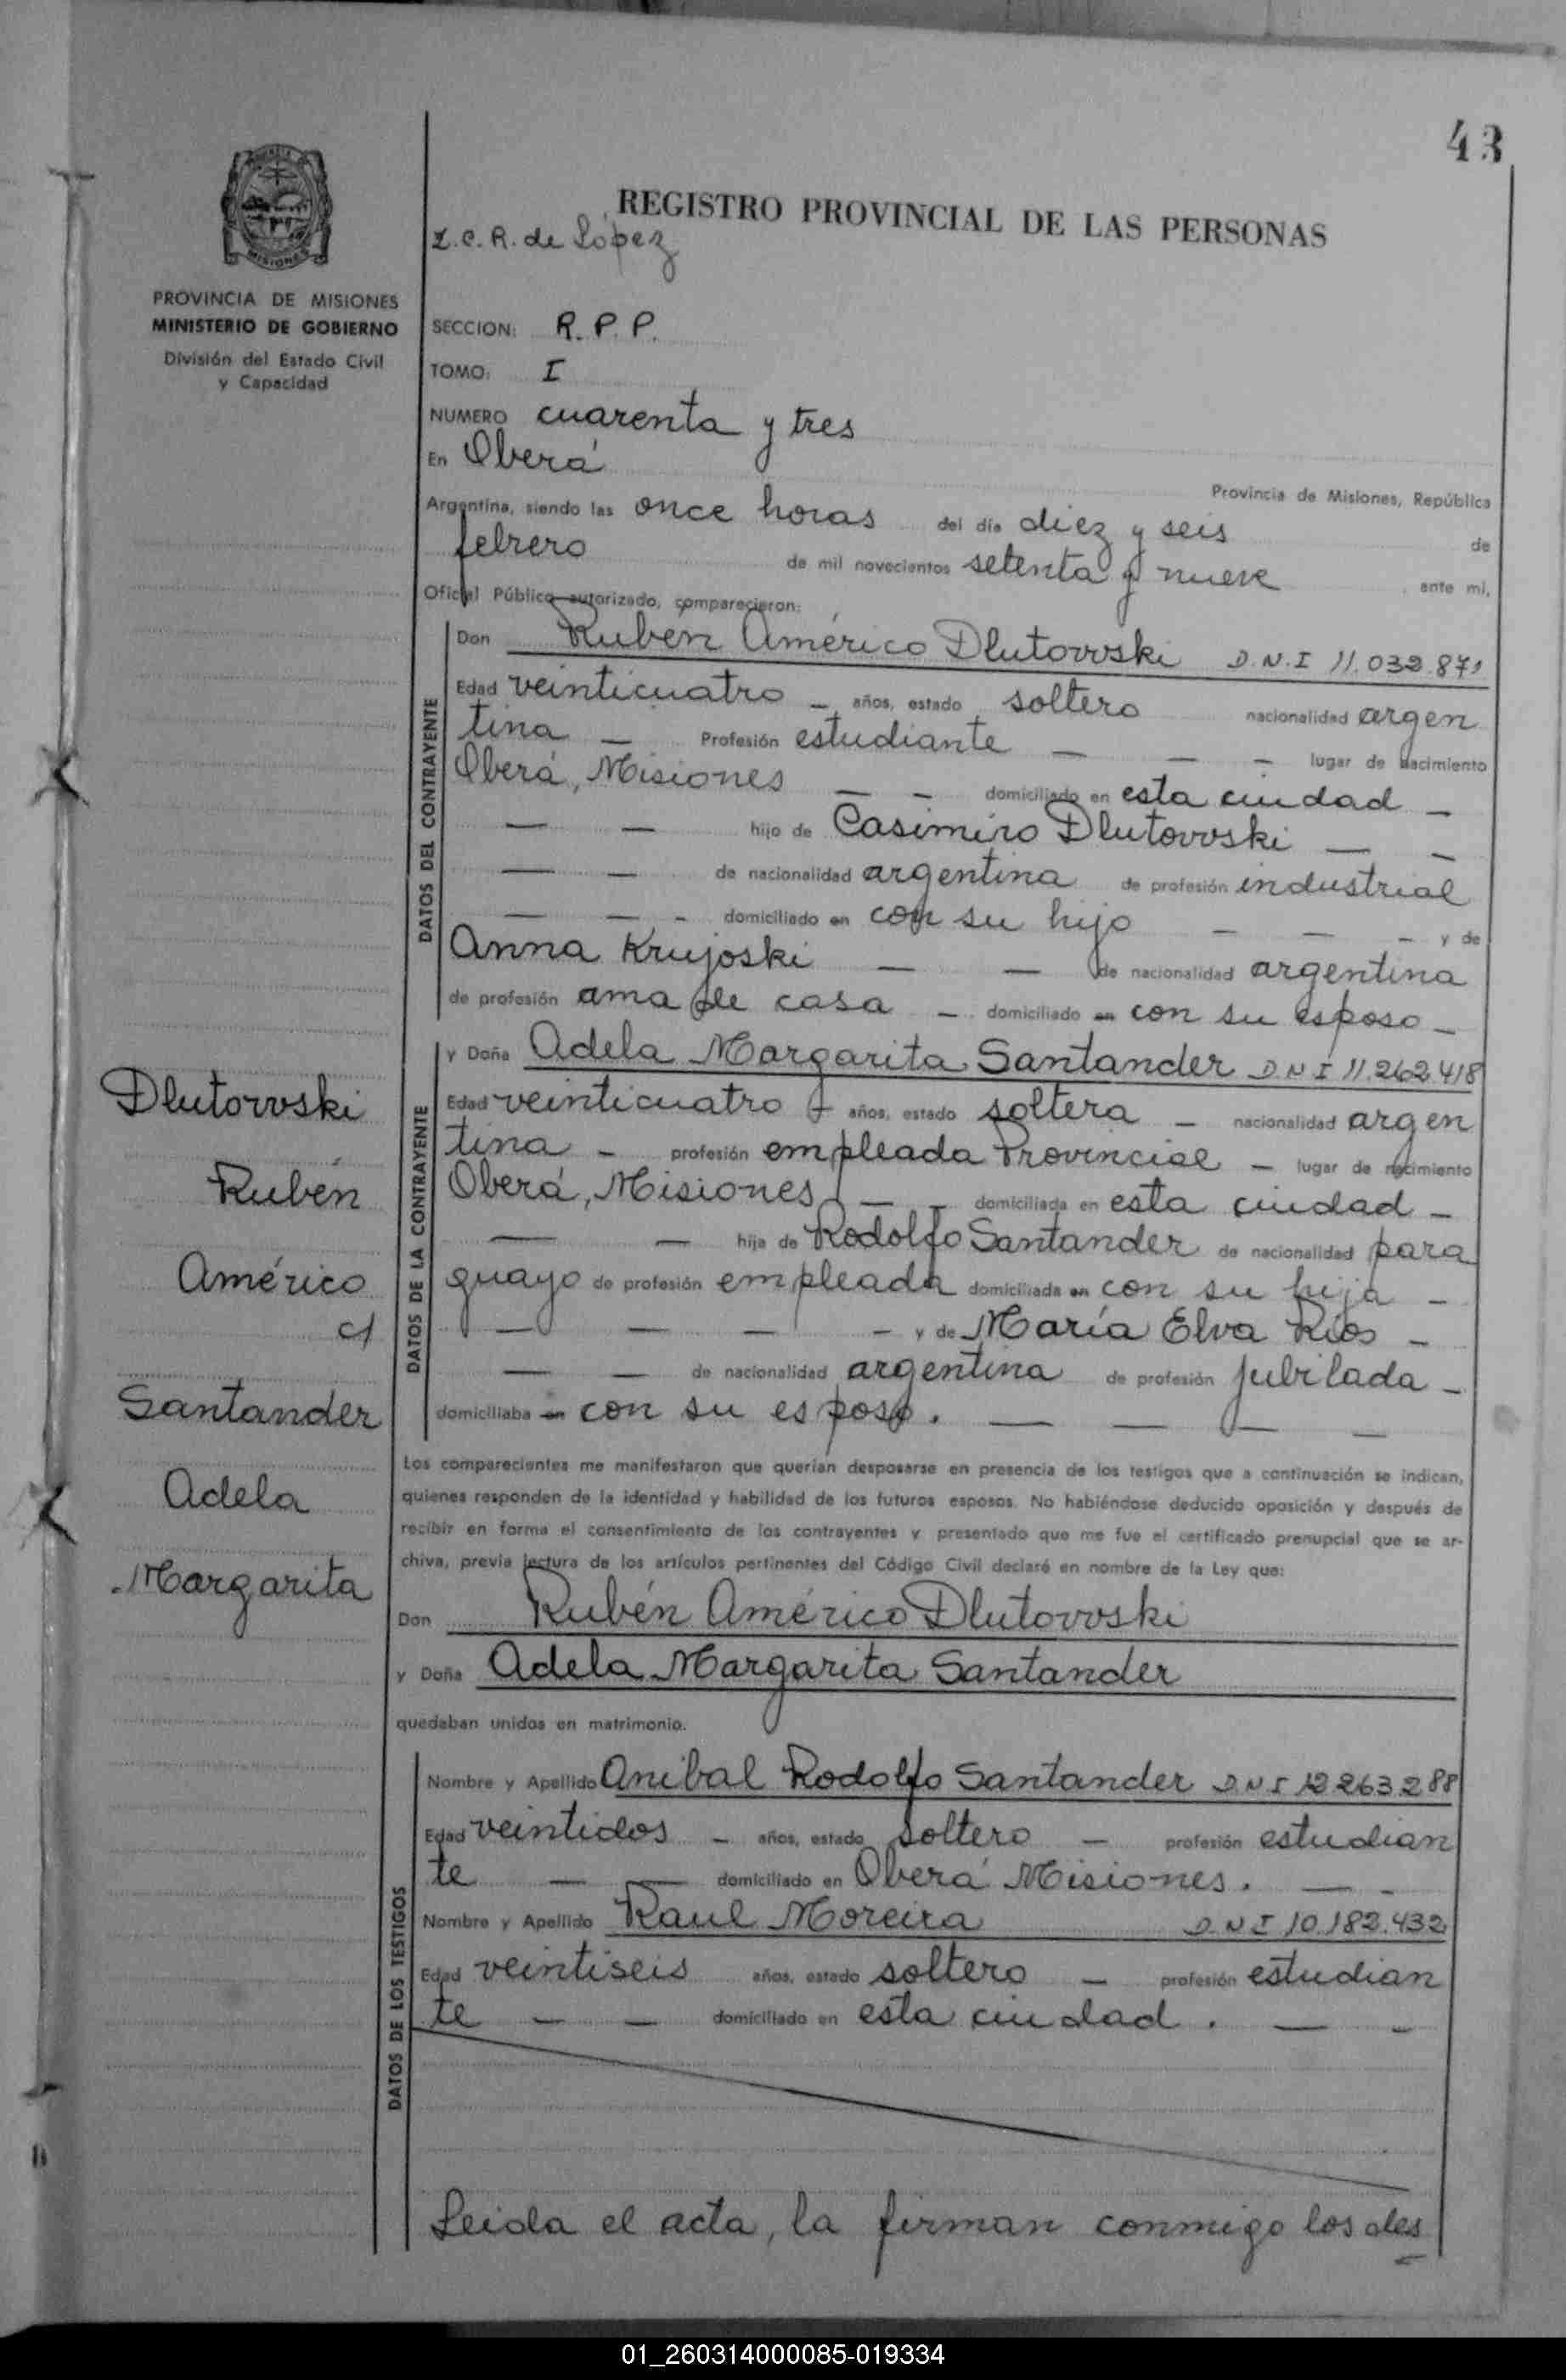 43
REGISTRO PROVINCIAL DE LAS PERSONAS
Z. C. R. de López
PROVINCIA DE MISIONES
MINISTERIO DE GOBIERNO
División del Estado Civil
y Capacidad
SECCION: R. P. P.
TOMO: I
NUMERO cuarenta y tres
En Oberá
Provincia de Misiones, República
Argentina, siendo las once horas del día diez y seis de
febrero de mil novecientos setenta y nueve ante mi,
Oficial Público autorizado, comparecieron:
DATOS DEL CONTRAYENTE
Don Rubén Américo Dlutowski D.N.I 11.032.871
Edad veinticuatro – años, estado soltero nacionalidad argen
tina – Profesión estudiante – – – lugar de nacimiento
Oberá, Misiones – – domiciliado en esta ciudad –
– – hijo de Casimiro Dlutowski – –
– – de nacionalidad argentina de profesión industrial
– – - domiciliado en con su hijo – – – y de
Anna Krujoski – – de nacionalidad argentina
de profesión ama de casa – domiciliado en con su esposo –
DATOS DE LA CONTRAYENTE
y Doña Adela Margarita Santander D N I 11.262.418
Edad veinticuatro – años, estado soltera – nacionalidad argen
tina – profesión empleada Provincial – lugar de nacimiento
Oberá, Misiones – – domiciliada en esta ciudad –
– – hija de Rodolfo Santander de nacionalidad para
guayo de profesión empleada domiciliada en con su hija –
– – – – y de María Elva Ríos –
– – de nacionalidad argentina de profesión jubilada –
domiciliaba en con su esposo. – – – –
Dlutowski
Rubén
Américo
c/
Santander
Adela
Margarita
Los comparecientes me manifestaron que querían desposarse en presencia de los testigos que a continuación se indican,
quienes responden de la identidad y habilidad de los futuros esposos. No habiéndose deducido oposición y después de
recibir en forma el consentimiento de los contrayentes y presentado que me fue el certificado prenupcial que se ar-
chiva, previa lectura de los artículos pertinentes del Código Civil declaré en nombre de la Ley que:
Don Rubén Américo Dlutowski
y Doña Adela Margarita Santander
quedaban unidos en matrimonio.
DATOS DE LOS TESTIGOS
Nombre y Apellido Anibal Rodolfo Santander D.N.I 12 263 288
Edad veintidos – años, estado soltero – profesión estudian
te – – domiciliado en Oberá Misiones. – -
Nombre y Apellido Raul Moreira D.N I 10.182.432
Edad veintiseis años, estado soltero – profesión estudian
te – – domiciliado en esta ciudad . – –
Leida el acta, la firman conmigo los des
01_260314000085-019334